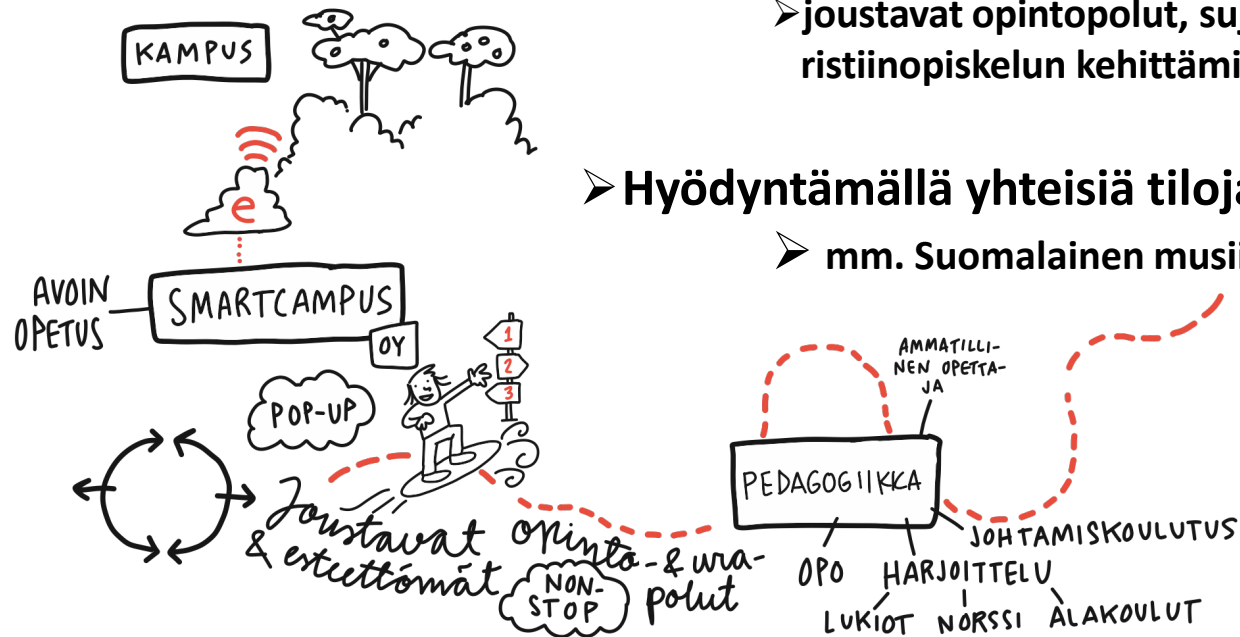 joustavat opintopolut,
ristiinopiskelun
KAMPUS
Hyödyntämällä yhteisiä
mm. Suomalainen
e
AVOIN
OPETUS
SMARTCAMPUS
OY
1
2
3
POP-UP
Joustavat opinto-& ura-
& esteettömät polut
NON-
STOP
AMMATILLI-
NEN OPETTA-
JA
PEDAGOGIIKKA
JOHTAMISKOULUTUS
OPO HARJOITTELU
LUKIOT NORSSI ALAKOULUT